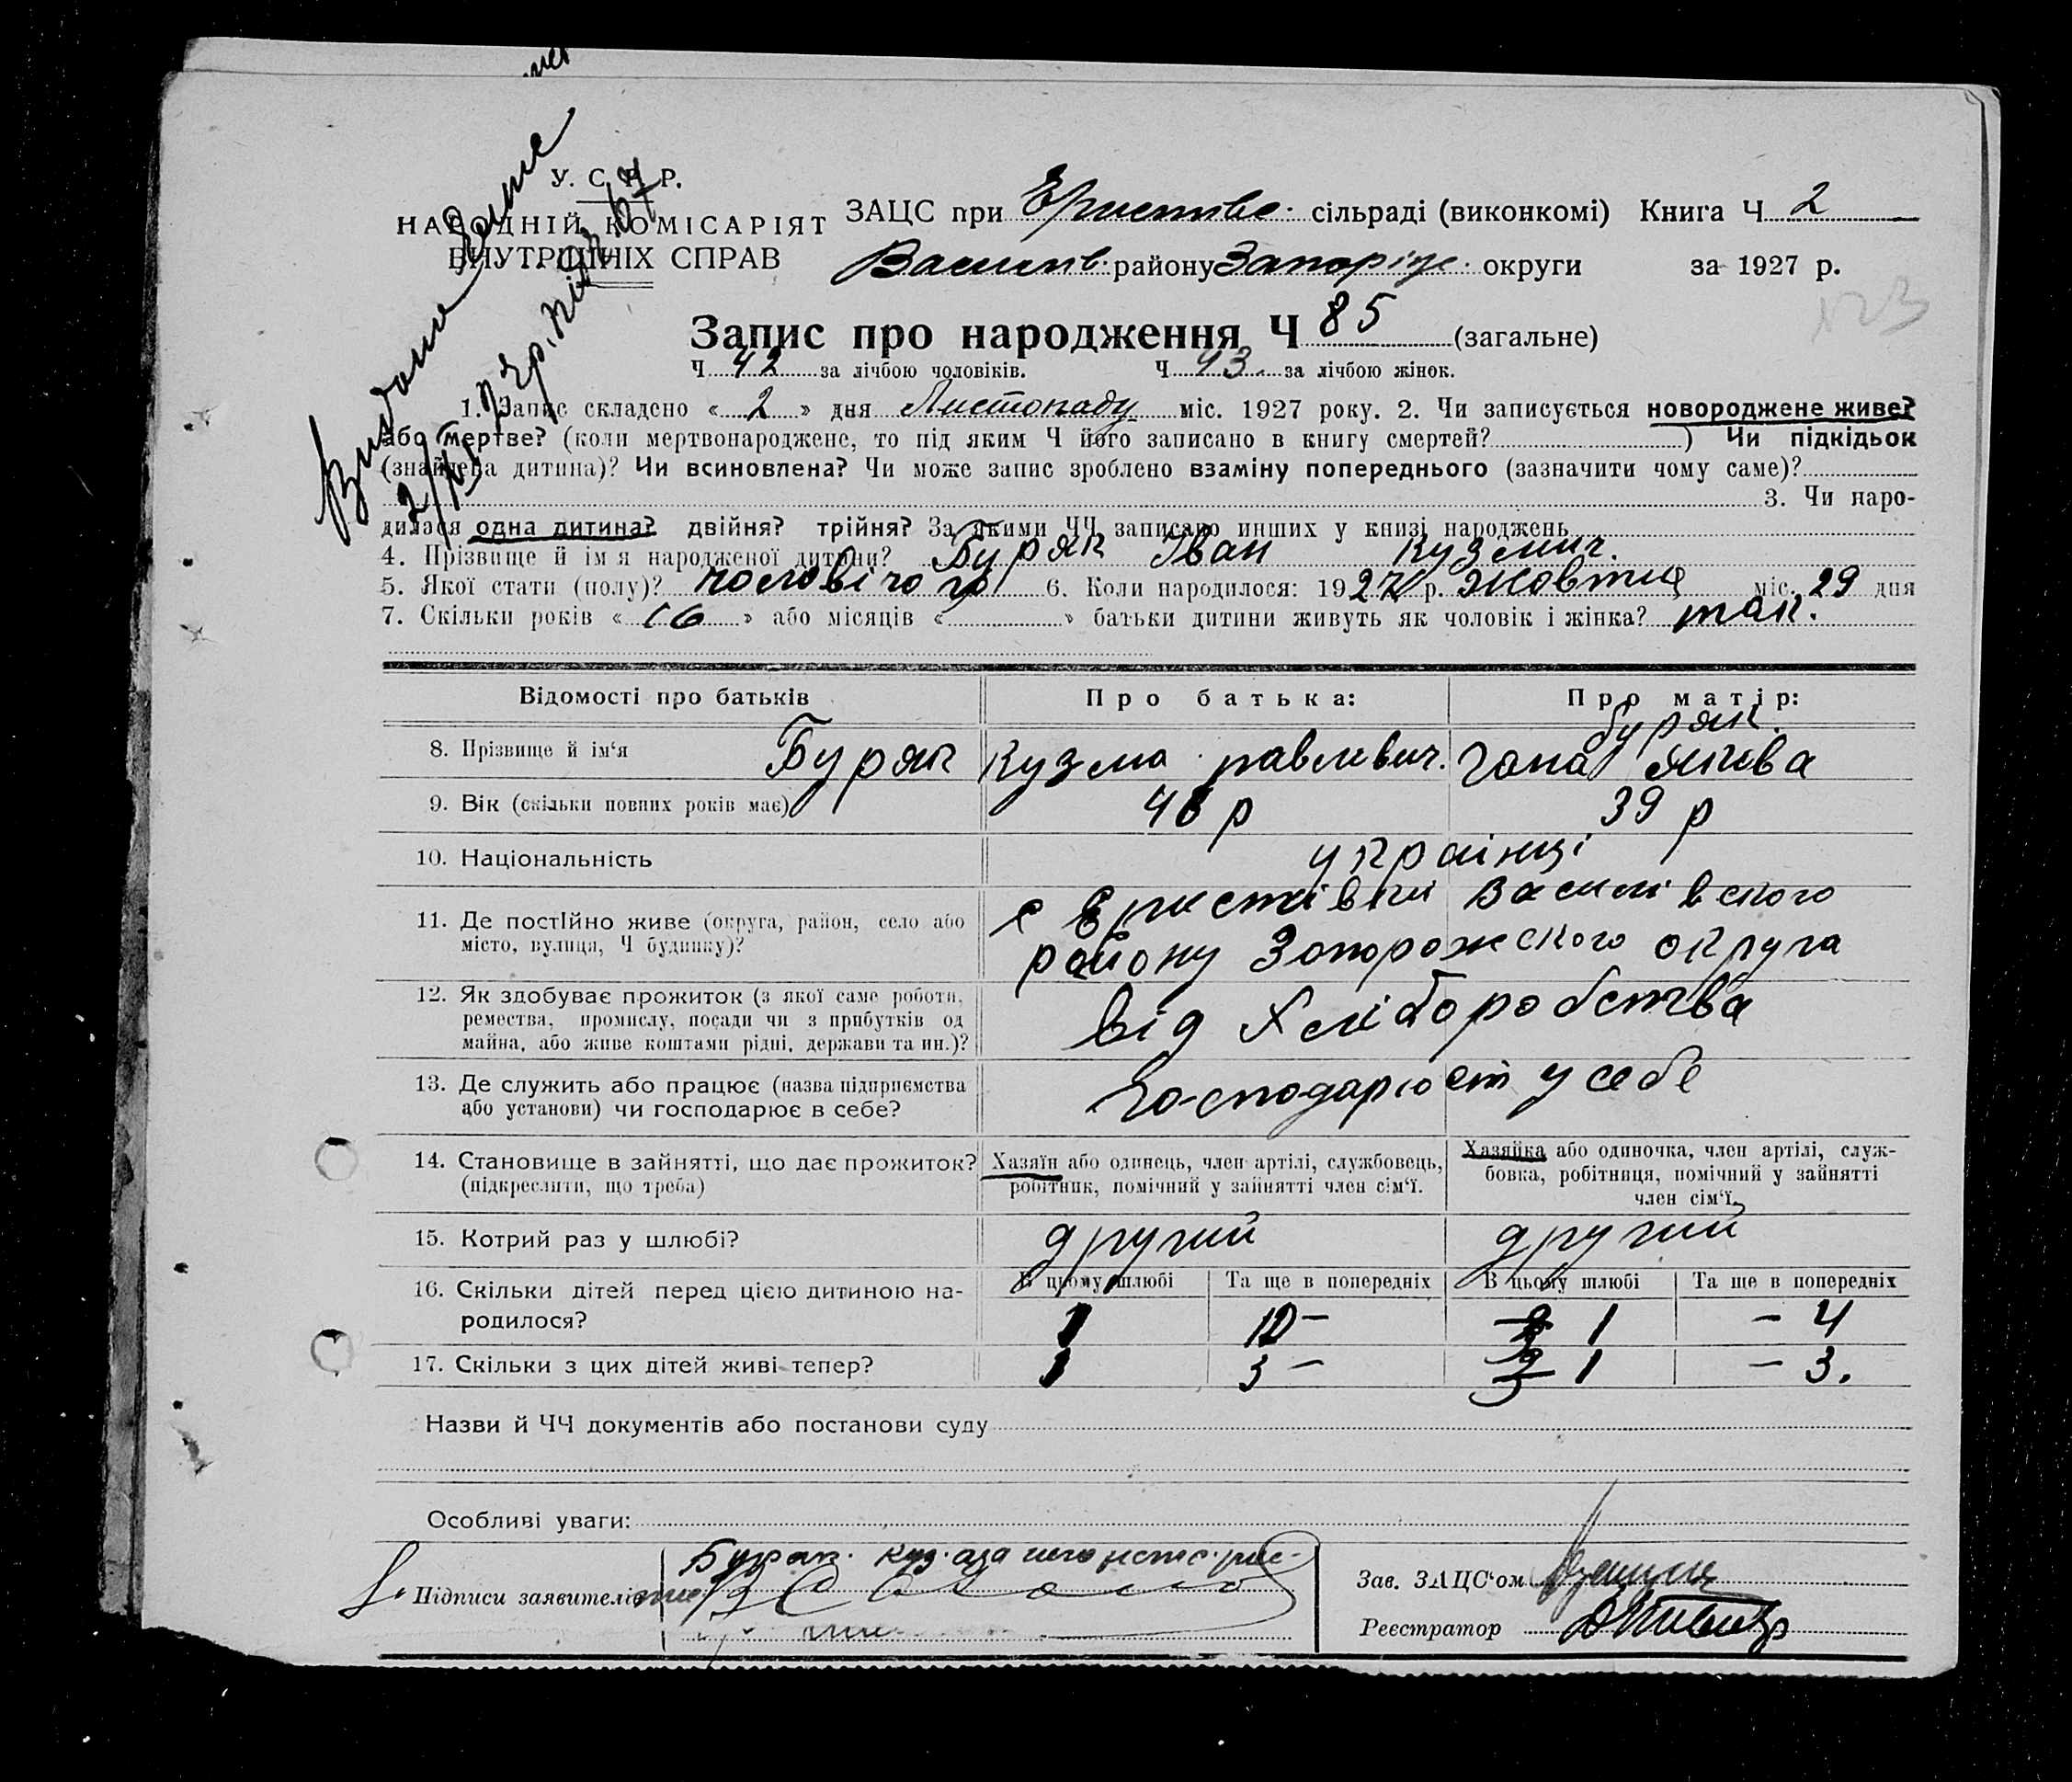 У. С. Р. Р.
НАРОДНІЙ КОМІСАРІЯТ
ВНУТРІШНІХ СПРАВ
ЗАЦС при Еристівс. сільраді (виконкомі) Книга Ч 2
Василів. району Запоріж. округи за 1927 р.
Видано
Запис про народження Ч 85 (загальне)
Ч 42 за лічбою чоловіків. Ч 43. за лічбою жінок.
1. Запис складено « 2 » дня Листопаду міс. 1927 року. 2. Чи записується новороджене живе?
або мертве? (коли мертвонароджене, то під яким Ч його записано в книгу смертей? ) Чи підкідьок
(знайдена дитина)? Чи всиновлена? Чи може запис зроблено взаміну попереднього (зазначити чому саме)?
3. Чи наро-
дилася одна дитина? двійня? трійня? За якими ЧЧ записано инших у книзі народжень
4. Прізвище й ім'я народженої дитини? Буряк Іван Кузмич.
5. Якої стати (полу)? чоловічого 6. Коли народилося: 1927 р. Жовтня міс. 29 дня
7. Скільки років « 16 » або місяців « » батьки дитини живуть як чоловік і жінка? так.
Відомості про батьків Про батька: Про матір:
буряк.
8. Прізвище й ім‘я Буряк Кузма павлович. Гана Яківа
9. Вік (скільки повних років має) 48 р 39 р
10. Національність українці
11. Де постійно живе (округа, район, село або с Еристівки Василівского
місто, вулиця, Ч будинку)? району Запорожского округа
12. Як здобуває прожиток (з якої саме роботи,
ремества, промислу, посади чи з прибутків од від Хліборобства
майна, або живе коштами рідні, держави та ин.)?
13. Де служить або працює (назва підприємства господарюєт у себе
або установи) чи господарює в себе?
14. Становище в зайнятті, що дає прожиток? Хазяїн або одинець, член артілі, службовець, Хазяйка або одиночка, член артілі, служ-
(підкреслити, що треба) робітник, помічний у зайнятті член сім‘ї. бовка, робітниця, помічний у зайнятті
член сім‘ї.
15. Котрий раз у шлюбі? другий другий
16. Скільки дітей перед цією дитиною на- В цьому шлюбі Та ще в попередніх В цьому шлюбі Та ще в попередніх
родилося? 1 10 – 1 – 4
17. Скільки з цих дітей живі тепер? 1 3 – 1 – 3.
Назви й ЧЧ документів або постанови суду
Особливі уваги:
Буряк.
Підписи заявителів
Зав. ЗАЦС‘ом
Реєстратор